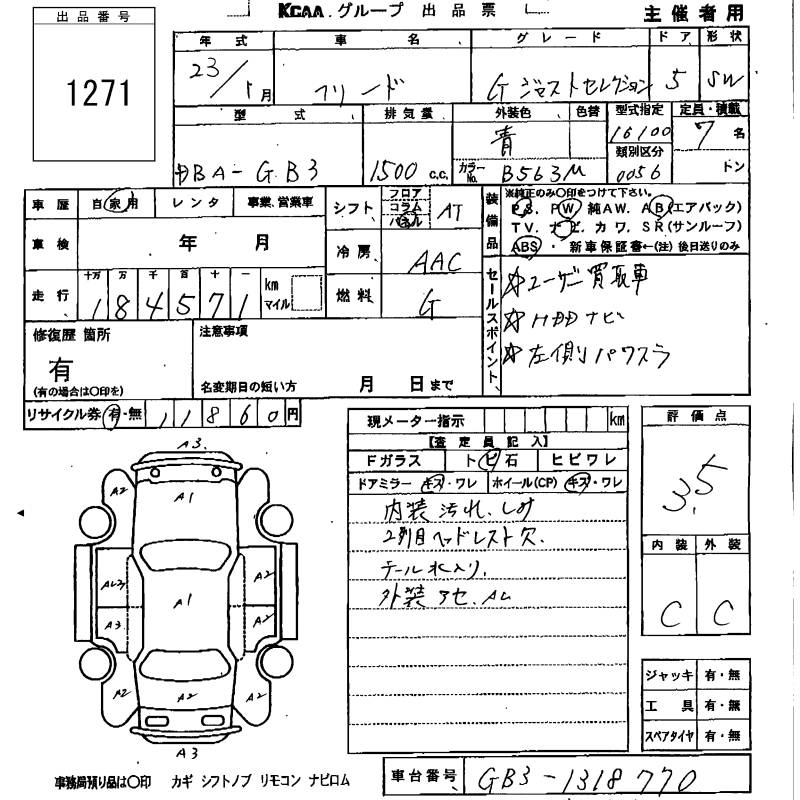 KCAA グループ 出品票
主催者用
出品番号
1271
年式 車名 グレード ドア 形状
23/1月 フリード G ジャストセレクション 5 SW
型式 排気量 外装色 色替 型式指定 定員・積載
DBA-GB3 1500 c.c. 青 16100 7名
カラーNo. B563M 類別区分 0056 トン
車歴 自家用 レンタ 事業、営業車
シフト フロア コラム パネル AT
車検 年 月
冷房 AAC
走行 十万 万 千 百 十 一 km マイル
184571
燃料 G
装備品 ※純正のみ○印をつけて下さい。
PS. PW 純AW. AB(エアバック)
TV. ナビ. カワ. SR(サンルーフ)
ABS・新車保証書←(注)後日送りのみ
セールスポイント
☆ユーザー買取車
☆HDDナビ
☆左側パワスラ
修復歴 箇所
有
(有の場合は○印を)
注意事項
名変期日の短い方 月 日まで
リサイクル券 有・無 11860円
現メーター指示 km
【査定員記入】
Fガラス トビ石 ヒビワレ
ドアミラー キズ・ワレ ホイール(CP) キズ・ワレ
内装 汚れ、しみ
2列目ヘッドレスト欠.
テール水入り.
外装 アセ.
評価点
3.5
内装 外装
C C
A3
A2
A1
A2
A3
A1
A2
A2
A2
A2
A3
ジャッキ 有・無
工具 有・無
スペアタイヤ 有・無
事務局預り品は○印 カギ シフトノブ リモコン ナビロム
車台番号 GB3-1318770